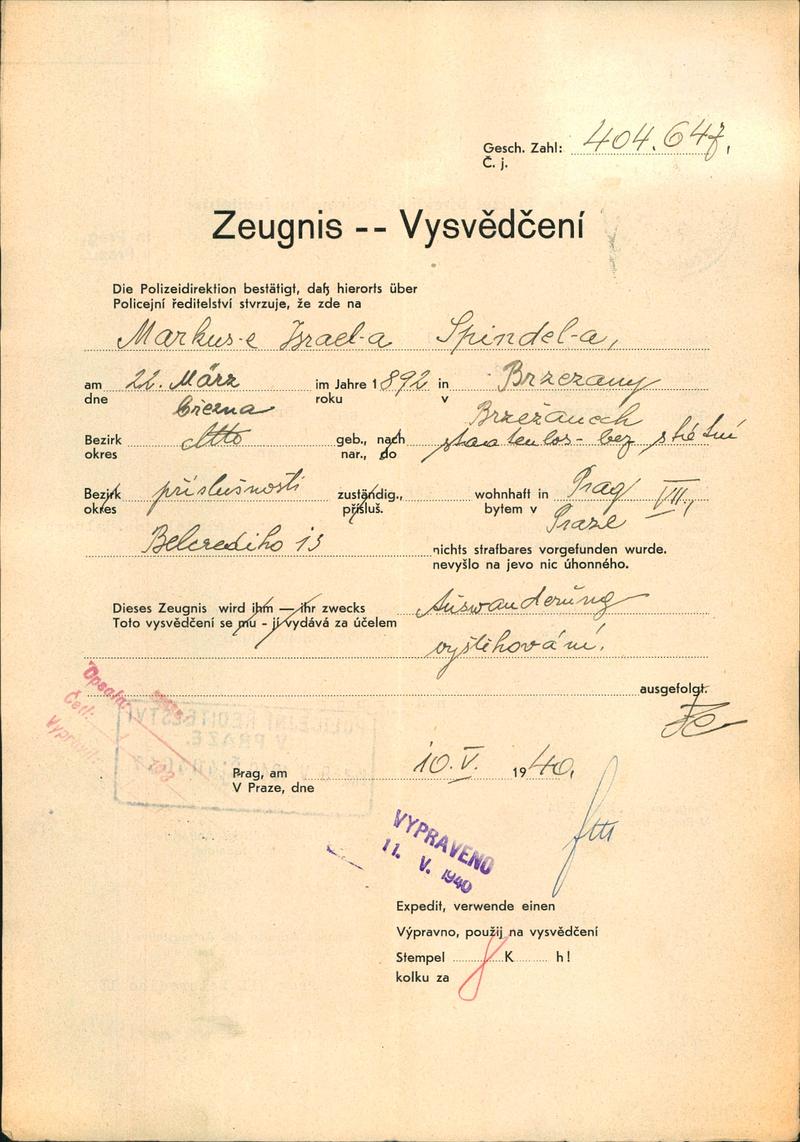 Gesch. Zahl: 404.647,
Č. j.
Zeugnis -- Vysvědčení
Die Polizeidirektion bestätigt, daß hierorts über
Policejní ředitelství stvrzuje, že zde na
Markus-e Israel-a Spindel-a,
am 22. März im Jahre 1892 in Brzezany
dne března roku v Brzežanech
Bezirk geb., nach staatenlos - bez státní
okres nar., do
Bezirk příslušnosti zuständig., wohnhaft in Prag VII.,
okres přísluš. bytem v Praze
Belcrediho 13 nichts strafbares vorgefunden wurde.
nevyšlo na jevo nic úhonného.
Dieses Zeugnis wird ihm — ihr zwecks Auswanderung
Toto vysvědčení se mu - jí vydává za účelem
vystěhování.
ausgefolgt.
Opsala:
Četl:
Vypravil:
POLICEJNÍ ŘEDITELSTVÍ
V PRAZE.
Prag, am 10. V. 1940.
V Praze, dne
VYPRAVENO
11. V. 1940
Expedit, verwende einen
Výpravno, použij na vysvědčení
Stempel K h!
kolku za